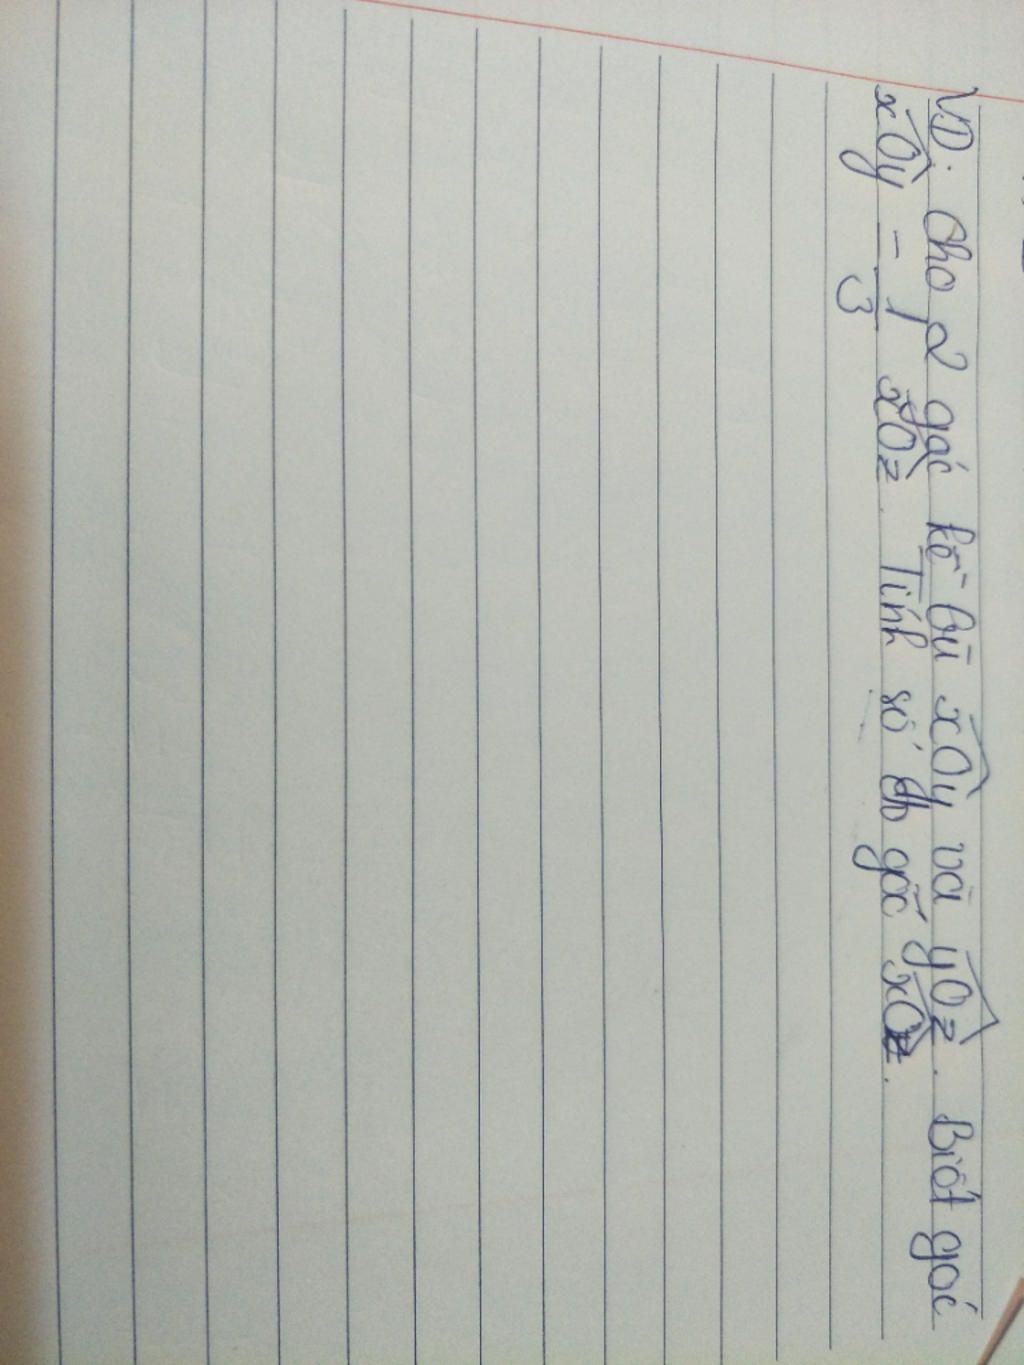 VD: Cho 2 góc kề bù xÔy và yÔz. Biết góc
xÔy = 1/3 xÔz. Tính số đo góc xÔz.